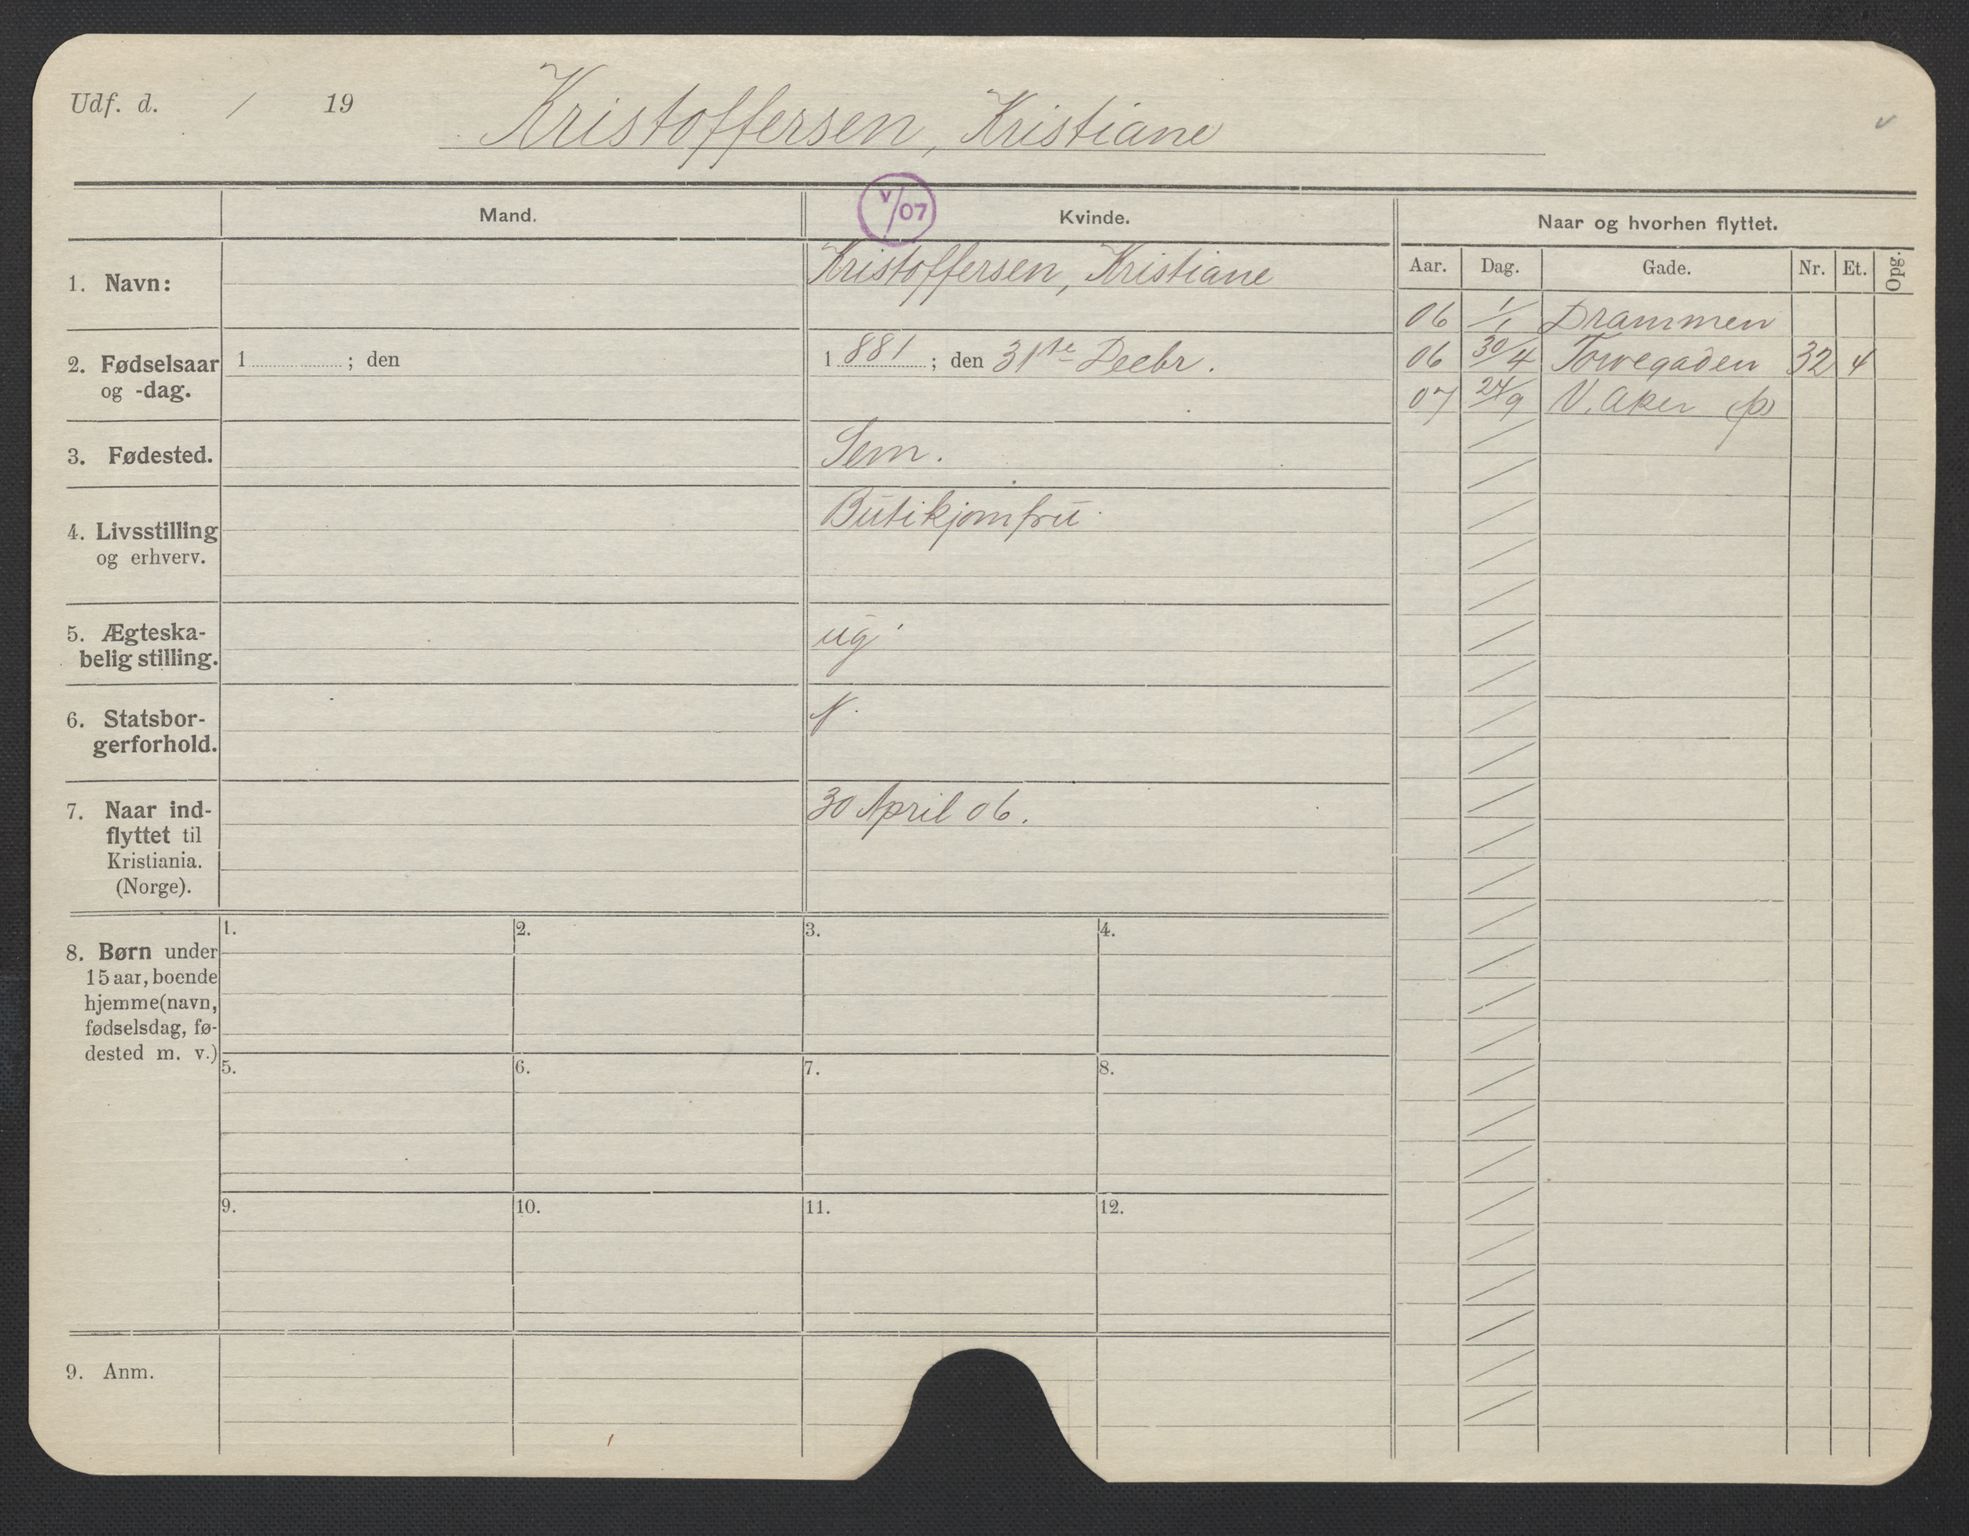 Udf. d. / 19 Kristoffersen, Kristiane
v
Mand. V/07 Kvinde. Naar og hvorhen flyttet.
Aar. Dag. Gade. Nr. Et. Opg.
1. Navn: Kristoffersen, Kristiane
06 1/1 Drammen
2. Fødselsaar 1 ; den 1 881 ; den 31te Decbr.
og -dag.
06 30/4 Torvegaden 32 4
07 24/9 V. Aker (p)
3. Fødested. Sem.
4. Livsstilling Butikjomfru
og erhverv.
5. Ægteska-
belig stilling. ug
6. Statsbor- N.
gerforhold.
7. Naar ind- 30 April 06.
flyttet til
Kristiania.
(Norge).
1. 2. 3. 4.
8. Børn under
15 aar, boende
hjemme (navn,
fødselsdag, fø-
dested m. v.)
5. 6. 7. 8.
9. 10. 11. 12.
9. Anm.